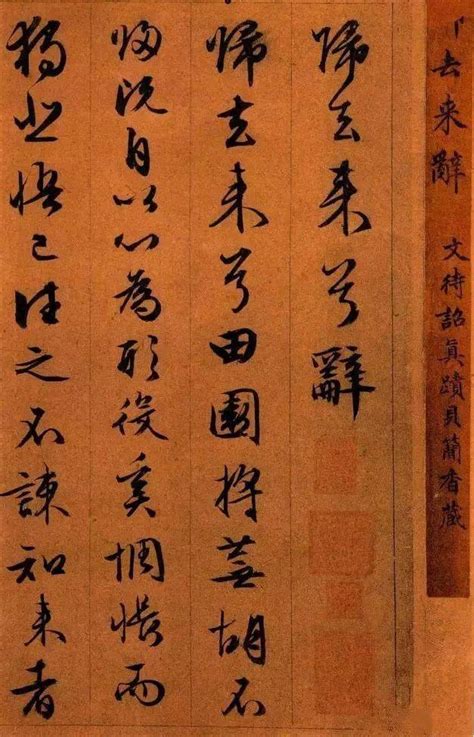 去来辭 文待詔真蹟貝簡香藏
歸去来兮辭
歸去来兮田園将蕪胡不
歸既自以心為形役奚惆悵而
獨悲悟已往之不諫知来者